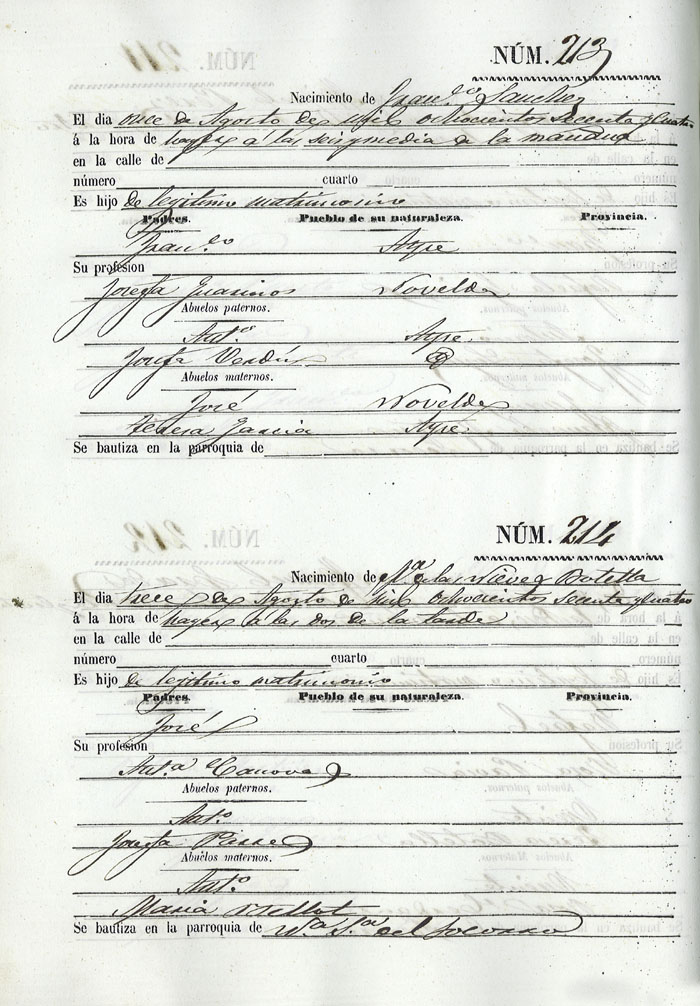 NÚM. 213
Nacimiento de Fran.co Sanchez
El dia once de Agosto de mil ochocientos secenta y cuatro
á la hora de nayer á las seis y media de la mañana
en la calle de
número cuarto
Es hijo de legitimo matrimonio
Padres. Pueblo de su naturaleza. Provincia.
Fran.co Aspe
Su profesion
Josefa Guarinos Novelda
Abuelos paternos.
Ant.o Aspe
Josefa Verdú
Abuelos maternos.
José Novelda
Teresa Garcia Aspe
Se bautiza en la parroquia de
NÚM. 214
Nacimiento de M.a de las Nieves Botella
El dia trece de Agosto de mil ochocientos secenta y cuatro
á la hora de nayer á las dos de la tarde
en la calle de
número cuarto
Es hijo de legitimo matrimonio
Padres. Pueblo de su naturaleza. Provincia.
José
Su profesion
Ant.a Canovas
Abuelos paternos.
Ant.o
Josefa
Abuelos maternos.
Ant.o
Maria
Se bautiza en la parroquia de N.a S.a del Socorro